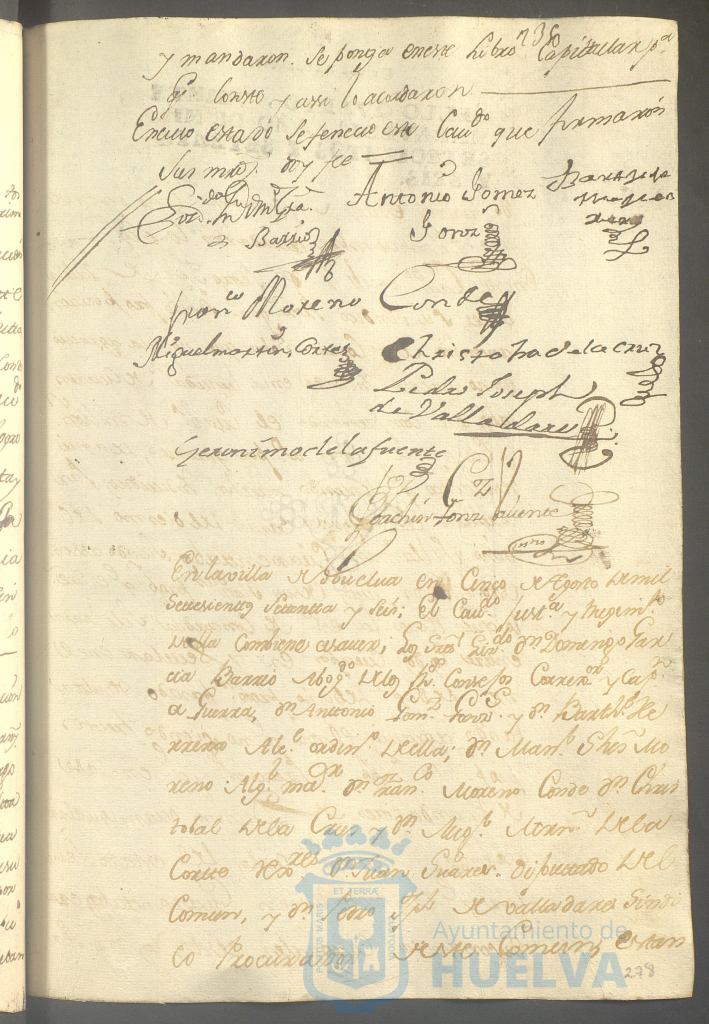 238
y mandaron. Se ponga en este Libro Capitular pa.
qe. Conste y assi lo acordaron
En cuio estado se fenecio este Cavdo. que firmaron
Sus mrds. doy fee
Antonio Gomez
Barrio Gonz
Franco Moreno Conde
Miguel martin, Cortes Christobal de la cruz
Pedro Joseph
de Valladares
Geronimo de la fuente
En la villa de Huelva en Cinco de Agosto de mil
Setesientos Setentta y Seis; El Cavdo. Justa. y Regimto.
della Combiene asaver; Los Sres. Lizdo. Dn. Domingo Gar
cia Barrio Abogdo. de los Rs. Consejos Corregor. y Capn.
a Guerra, Dn. Anttonio Gomz. Gonz. y Dn. Barthme. He
rrero Ale. ordins. della; Dn. Manl. Mo
reno Algl. mar. Dn. Franco. Moreno Conde Dn. Chris
tobal de la Crus y Dn. Migl. Martn. de la
Cortes Dn. Juan Suarez. Diputtado del
Comun, y Dn. Pedro Jph. de Valladares Sindi
co Procurador deste Comun; estan
ET TERRÆ
PORTUS MARIS
CUSTODIA
Ayuntamiento de
HUELVA
278